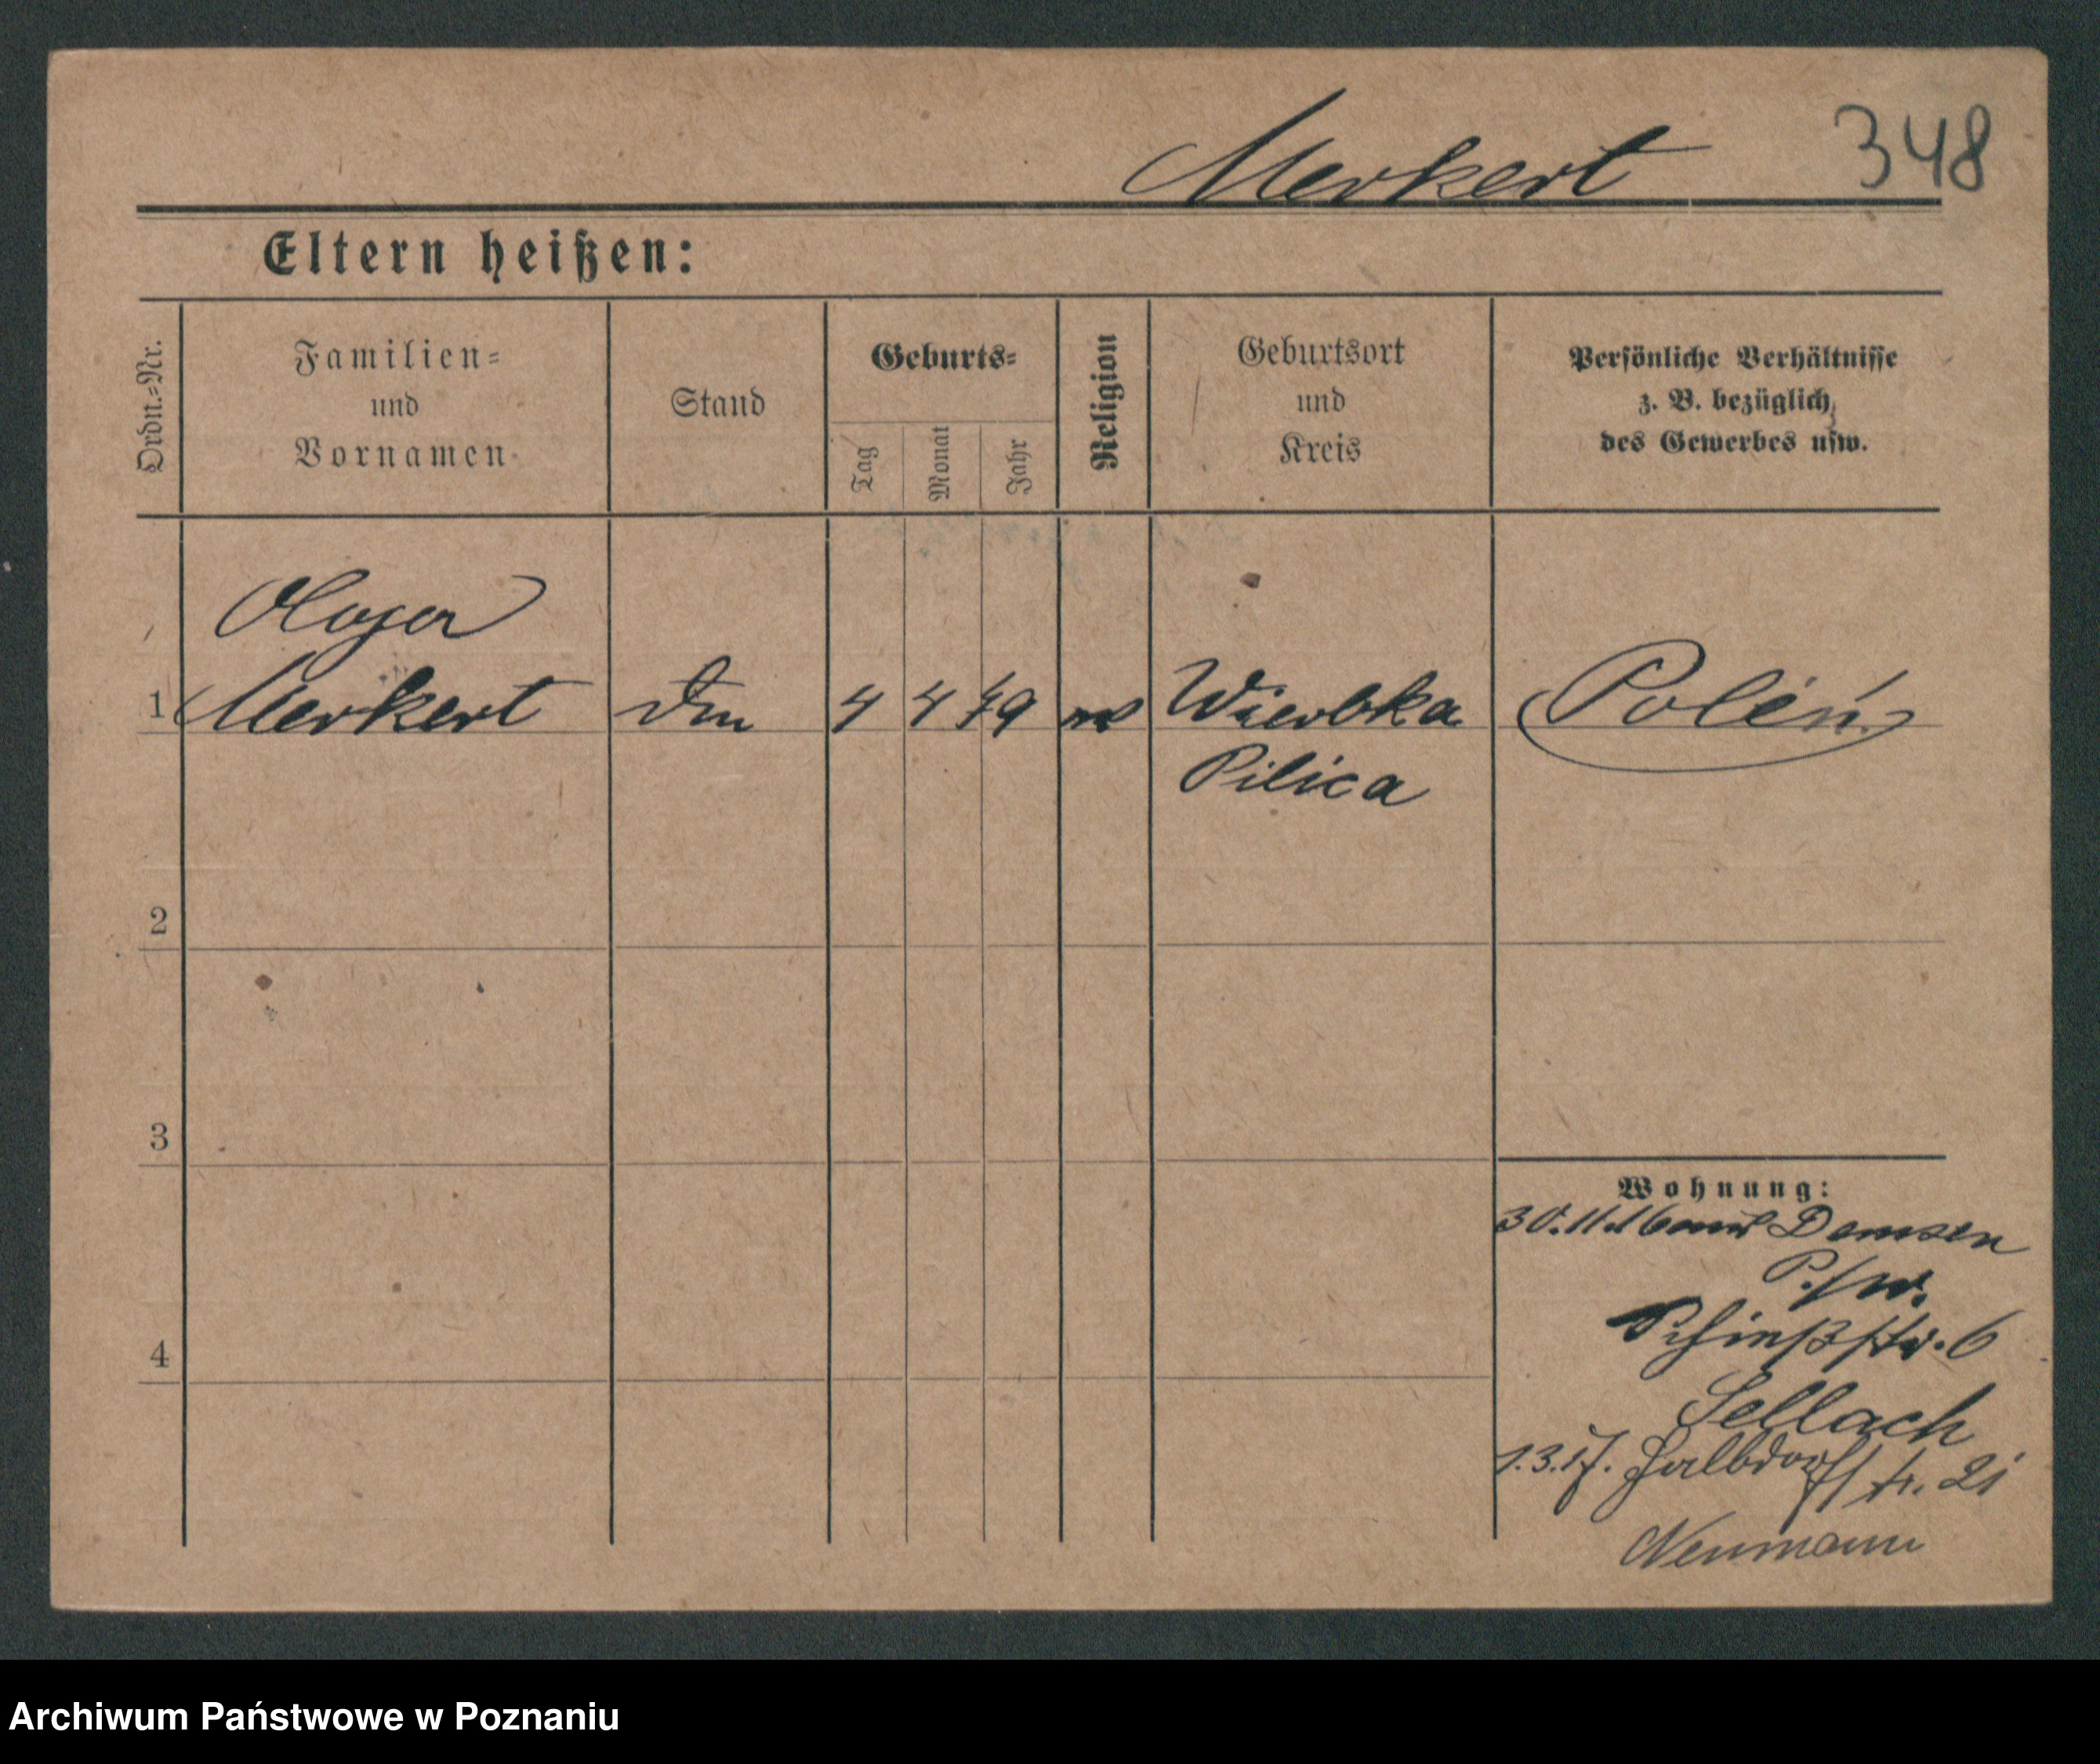 Merkert 348
Eltern heißen:
Ordn.-Nr.
Familien-
und
Vornamen
Stand
Geburts-
Tag
Monat
Jahr
Religion
Geburtsort
und
Kreis
Persönliche Verhältnisse
z. B. bezüglich
des Gewerbes usw.
1 Merkert 4 4 79 Wierbka Polen
Pilica
2
3
4
Wohnung:
30.11.16 aus Demsen
P./W.
Schießstr. 6
Sellach
1.3.17. Halbdorfstr. 21
Neumann
Archiwum Państwowe w Poznaniu